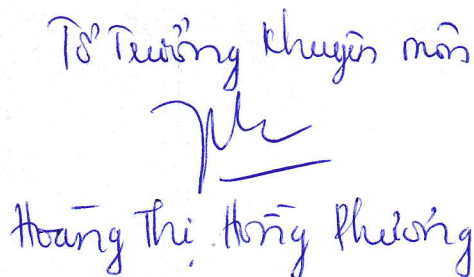 Tổ Trưởng chuyên môn
Hoàng Thị Hồng Phương